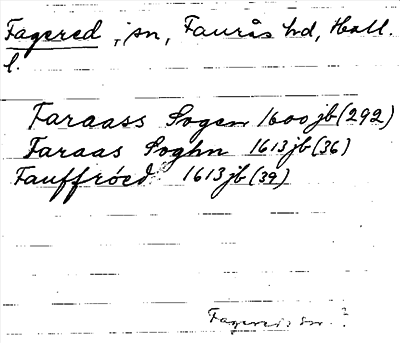 Fagered, sn, Faurås hd, Hall.
l.
Faraass Sogen 1600 jb (292)
Faraas Soghn 1613 jb (36)
Fauffröed 1613 jb (39)
sn. ?